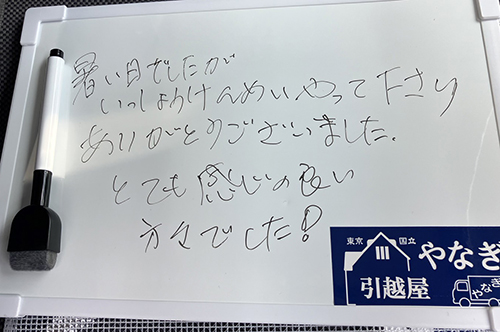 暑い日でしたが
いっしょうけんめいやって下さり
ありがとうございました。
とても感じの良い
方々でした!
東京 国立
やなぎ
引越屋
やなぎ